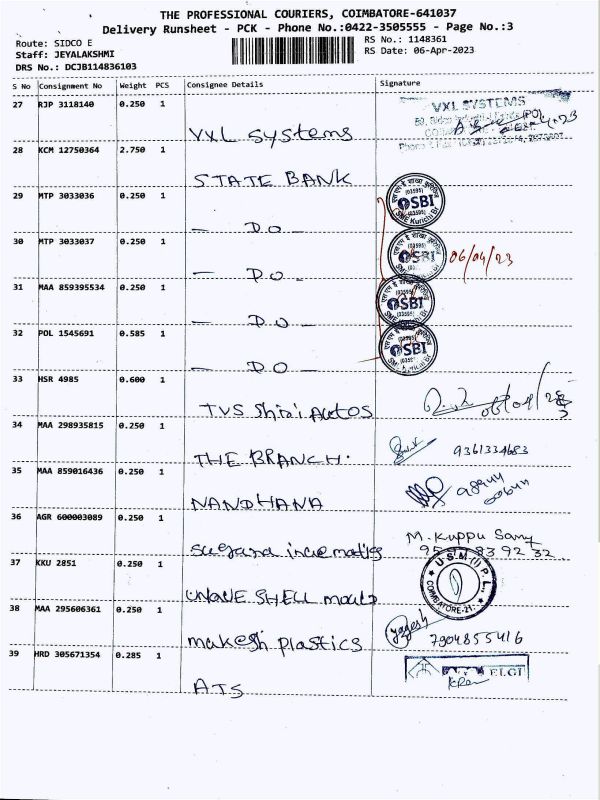 THE PROFESSIONAL COURIERS, COIMBATORE-641037
Delivery Runsheet - PCK - Phone No.:0422-3505555 - Page No.:3
Route: SIDCO E
RS No.: 1148361
Staff: JEYALAKSHMI
RS Date: 06-Apr-2023
DRS No.: DCJB114836103
S No Consignment No Weight PCS Consignee Details Signature
27 RJP 3118140 0.250 1
VXL SYSTEMS
VXL Systems
28 KCM 12750364 2.750 1
STATE BANK
29 MTP 3033036 0.250 1
SBI
SME Kurichi Br
— DO —
30 MTP 3033037 0.250 1
SBI
06/04/23
— DO —
31 MAA 859395534 0.250 1
SBI
— DO —
32 POL 1545691 0.585 1
SBI
— DO —
33 HSR 4985 0.600 1
TVS Shri Autos
34 MAA 298935815 0.250 1
9361334683
THE BRANCH.
35 MAA 859016436 0.250 1
NANDHANA
36 AGR 600003089 0.250 1
M. Kuppu Samy
37 KKU 2851 0.250 1
U.S.M (I) P.L.
COIMBATORE-21.
SHELL mould
38 MAA 295606361 0.250 1
yogesh
7904855416
makesh plastics
39 HRD 305671354 0.285 1
ELGI
ATS